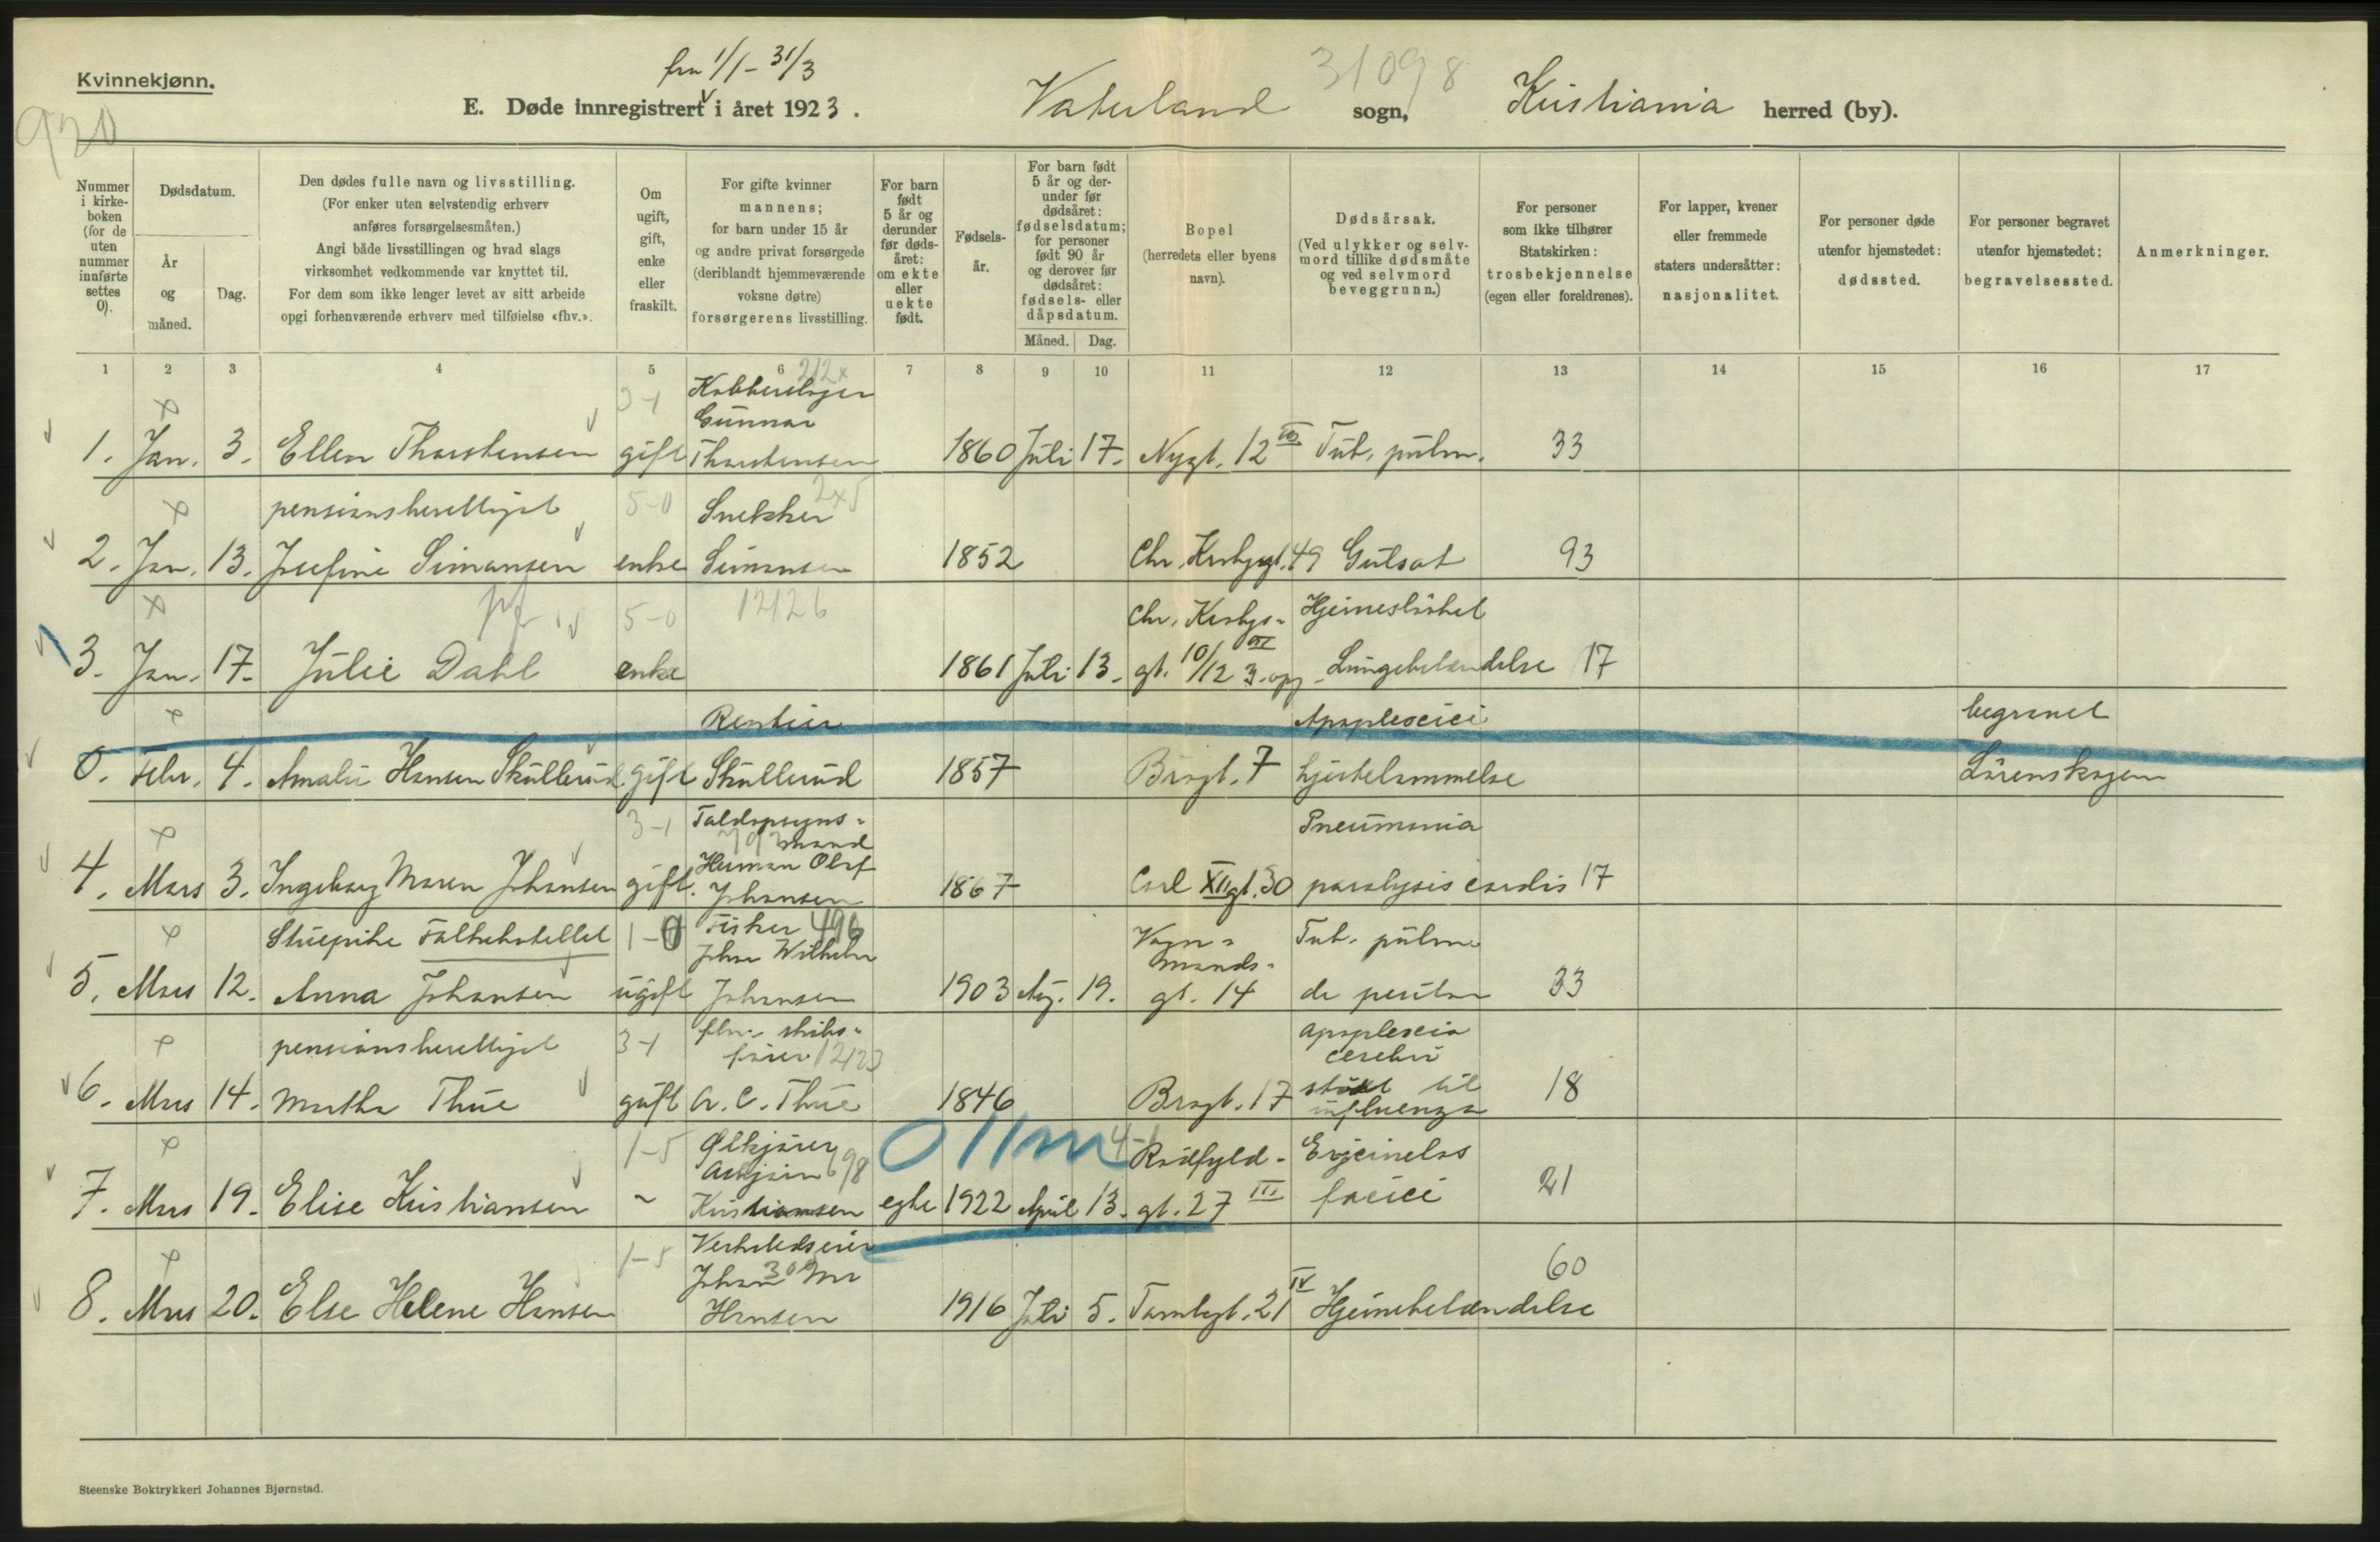 Kvinnekjønn.
fra 1/1 - 31/3
E. Døde innregistrert i året 1923.
Vaterland sogn,
31098
Kristiania herred (by).
920
Nummer i kirkeboken (for de uten nummer innførte settes 0).
Dødsdatum.
År og måned.
Dag.
Den dødes fulle navn og livsstilling.
(For enker uten selvstendig erhverv
anføres forsørgelsesmåten.)
Angi både livsstillingen og hvad slags
virksomhet vedkommende var knyttet til.
For dem som ikke lenger levet av sitt arbeide
opgi forhenværende erhverv med tilføielse «fhv.».
Om ugift, gift, enke eller fraskilt.
For gifte kvinner
mannens;
for barn under 15 år
og andre privat forsørgede
(deriblandt hjemmeværende
voksne døtre)
forsørgerens livsstilling.
For barn født 5 år og derunder før dødsåret: om ekte eller uekte født.
Fødselsår.
For barn født 5 år og derunder før dødsåret: fødselsdatum; for personer født 90 år og derover før dødsåret: fødsels- eller dåpsdatum.
Måned.
Dag.
Bopel
(herredets eller byens
navn).
Dødsårsak.
(Ved ulykker og selvmord tillike dødsmåte og ved selvmord beveggrunn.)
For personer
som ikke tilhører
Statskirken:
trosbekjennelse
(egen eller foreldrenes).
For lapper, kvener
eller fremmede
staters undersåtter:
nasjonalitet.
For personer døde
utenfor hjemstedet:
dødssted.
For personer begravet
utenfor hjemstedet:
begravelsessted.
Anmerkninger.
1 2 3 4 5 6 7 8 9 10 11 12 13 14 15 16 17
Gunnar
1. Jan. 3. Ellen Thorstensen gift Thorstensen 1860 Juli 17. Nygt. 12 III Tub. pulm. 33
pensionsberettiget 5-0 Snekker
2. Jan. 13. Josefine Simonsen enke Simonsen 1852 Chr. Krohgsgt. 49 Gulsot 93
5-0 12126 Chr. Krohgs-
3. Jan. 17. Julie Dahl enke 1861 Juli 13. gt. 10/12 3. opg Lungebetændelse 17
Rentier begravet
0. Febr. 4. Amalie Hansen Skullerud gift Skullerud 1857 Brogt. 7 hjertelammelse Lørenskogen
3-1 Toldopsyns-
mand Pneumonia
Herman Olaf
4. Mars 3. Ingeborg Maren Johansen gift. Johansen 1867 Carl XII gt. 30 paralysis cordis 17
1-0 Fisker 496
Johan Wilhelm
5. Mars 12. Anna Johansen ugift Johansen Tub. pulm
1903 Aug. 19. Vognmandsgt. 14 33
pensionsberettiget 3-1 fhv. skibsfører apoplexia cerebri
6. Mars 14. Martha Thue gift A. C. Thue 1846 Brogt. 17 støt til influenza 18
1-5 Ølkjører 0 11m
Rødfyld-
7. Mars 19. Elise Kristiansen Kristiansen egte 1922 April 13. gt. 27 III faciei 21
1-5 Verkstedseier
Johan
8. Mars 20. Else Helene Hansen Hansen 1916 Juli 5. Tomtegt. 21 IV Hjernebetændelse 60
Steenske Boktrykkeri Johannes Bjørnstad.